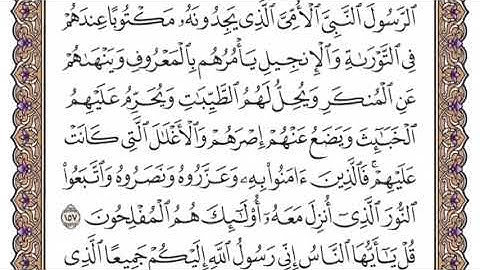 ٱلرَّسُولَ ٱلنَّبِىَّ ٱلْأُمِّىَّ ٱلَّذِى يَجِدُونَهُۥ مَكْتُوبًا عِندَهُمْ
فِى ٱلتَّوْرَىٰةِ وَٱلْإِنجِيلِ يَأْمُرُهُم بِٱلْمَعْرُوفِ وَيَنْهَىٰهُمْ
عَنِ ٱلْمُنكَرِ وَيُحِلُّ لَهُمُ ٱلطَّيِّبَـٰتِ وَيُحَرِّمُ عَلَيْهِمُ
ٱلْخَبَـٰٓئِثَ وَيَضَعُ عَنْهُمْ إِصْرَهُمْ وَٱلْأَغْلَـٰلَ ٱلَّتِى كَانَتْ
عَلَيْهِمْ ۚ فَٱلَّذِينَ ءَامَنُوا۟ بِهِۦ وَعَزَّرُوهُ وَنَصَرُوهُ وَٱتَّبَعُوا۟
ٱلنُّورَ ٱلَّذِىٓ أُنزِلَ مَعَهُۥٓ ۙ أُو۟لَـٰٓئِكَ هُمُ ٱلْمُفْلِحُونَ ١٥٧
قُلْ يَـٰٓأَيُّهَا ٱلنَّاسُ إِنِّى رَسُولُ ٱللَّهِ إِلَيْكُمْ جَمِيعًا ٱلَّذِى